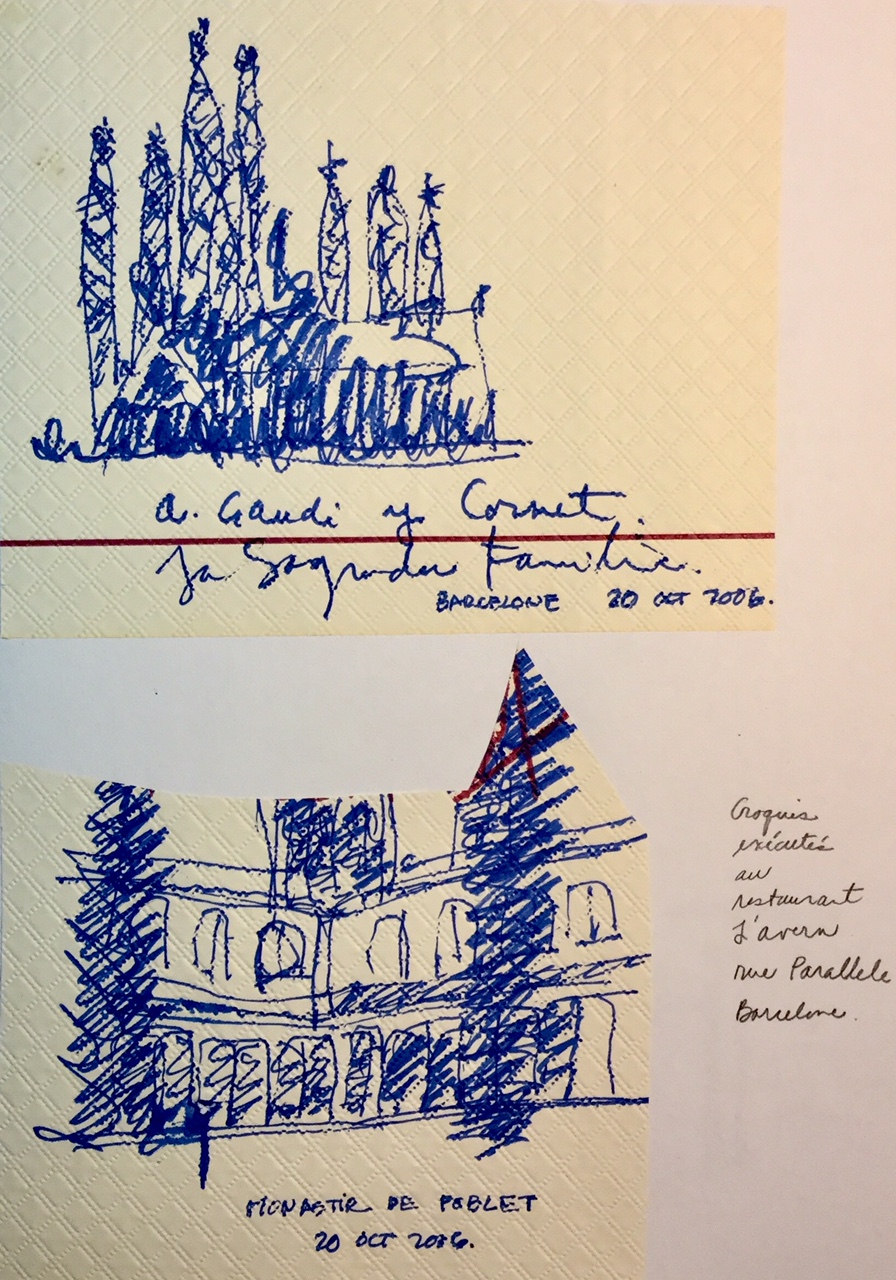 A. Gaudi y Cornet.
la Sagrada Familia.
BARCELONE 20 OCT 2006.
Croquis
exécutés
au
restaurant
L'avern
rue Parallele
Barcelone.
MONASTIR DE POBLET
20 OCT 2006.